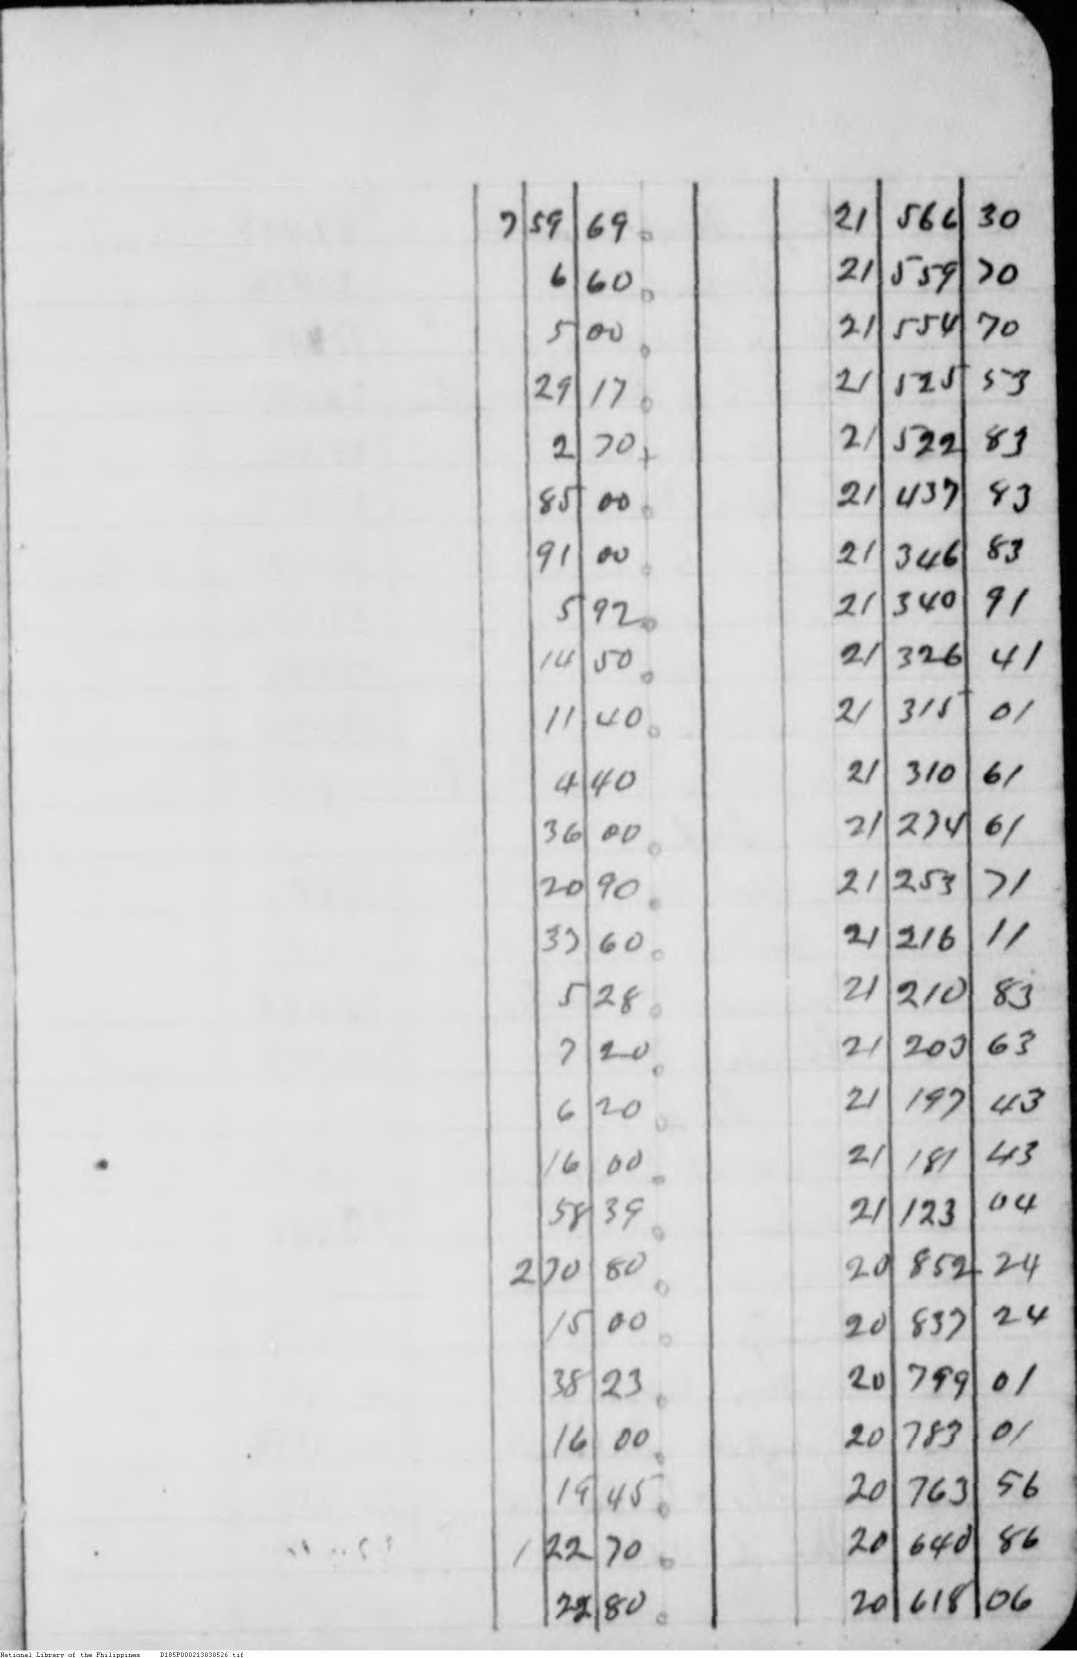 759 69 21 566 30
6 60 21 559 70
5 00 21 554 70
29 17 21 525 53
2 70 21 522 83
85 00 21 437 83
91 00 21 346 83
5 92 21 340 91
14 50 21 326 41
11 40 21 315 01
4 40 21 310 61
36 00 21 274 61
20 90 21 253 71
37 60 21 216 11
5 28 21 210 83
7 20 21 203 63
6 20 21 197 43
16 00 21 181 43
58 39 21 123 04
270 80 20 852 24
15 00 20 837 24
38 23 20 799 01
16 00 20 783 01
19 45 20 763 56
122 70 20 640 86
22 80 20 618 06
National Library of the Philippines D185P000213838526.tif